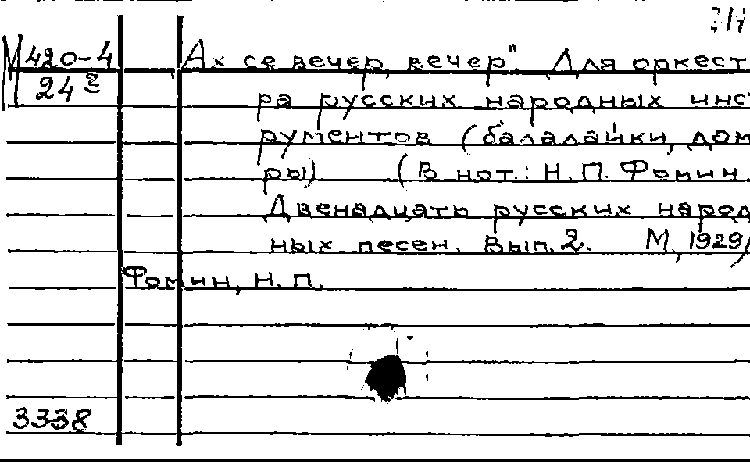 М 420-4
24²
Ах се вечер, вечер". Для оркест
ра русских народных инс
рументов (балалайки, дом
ры) (В нот.: Н. П. Фомин.
Двенадцать русских народ
ных песен. Вып. 2. М, 1929)
Фомин, Н. П.
3338